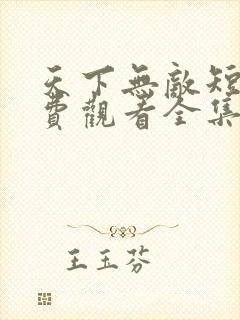 天下無敵短
費觀看全集
王玉芬